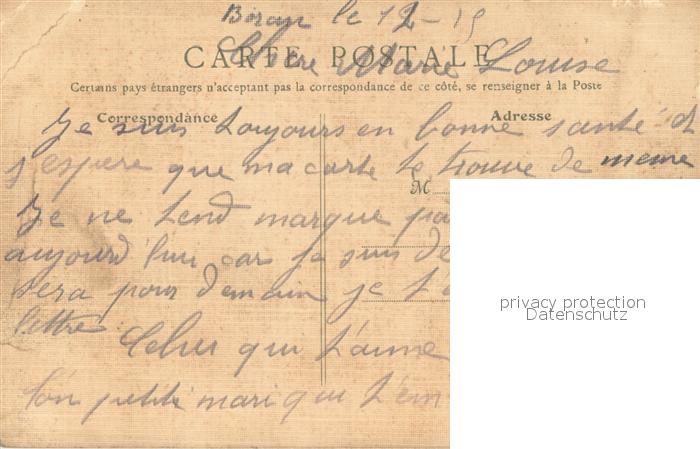 le 12-15
CARTE POSTALE
Chère Marie Louise
Certains pays étrangers n'acceptant pas la correspondance de ce côté, se renseigner à la Poste
Correspondance
Adresse
Je suis toujours en bonne santé et
j'espère que ma carte te trouve de meme
M
Je ne tend marque pa
aujourd'hui car je suis de
sera pour demain je t'
lettre
privacy protection
Datenschutz
Celui qui t'aime
Ton petite mari qui t'em